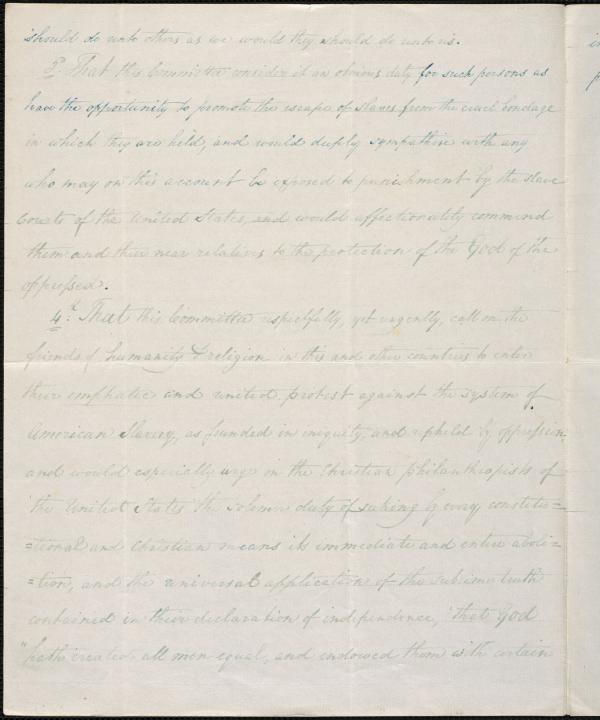 should do unto others as we would they should do unto us.
3d. That this Committee consider it an obvious duty for such persons as
have the opportunity to promote the escape of slaves from the cruel bondage
in which they are held, and would deeply sympathise with any
who may on this account be exposed to punishment by the slave
Courts of the United States, and would affectionately commend
them and their near relatives to the protection of the God of the
oppressed.
4th. That this Committee respectfully, yet urgently, call on the
friends of humanity & religion in this and other countries to enter
their emphatic and united protest against the system of
American Slavery, as founded in iniquity, and upheld by oppression
and would especially urge on the Christian philanthropists of
the United States the solemn duty of seeking by every constitu=
=tional and Christian means its immediate and entire aboli=
=tion, and the universal application of the sublime truth
contained in their declaration of independence, "that God
"hath created all men equal, and endowed them with certain